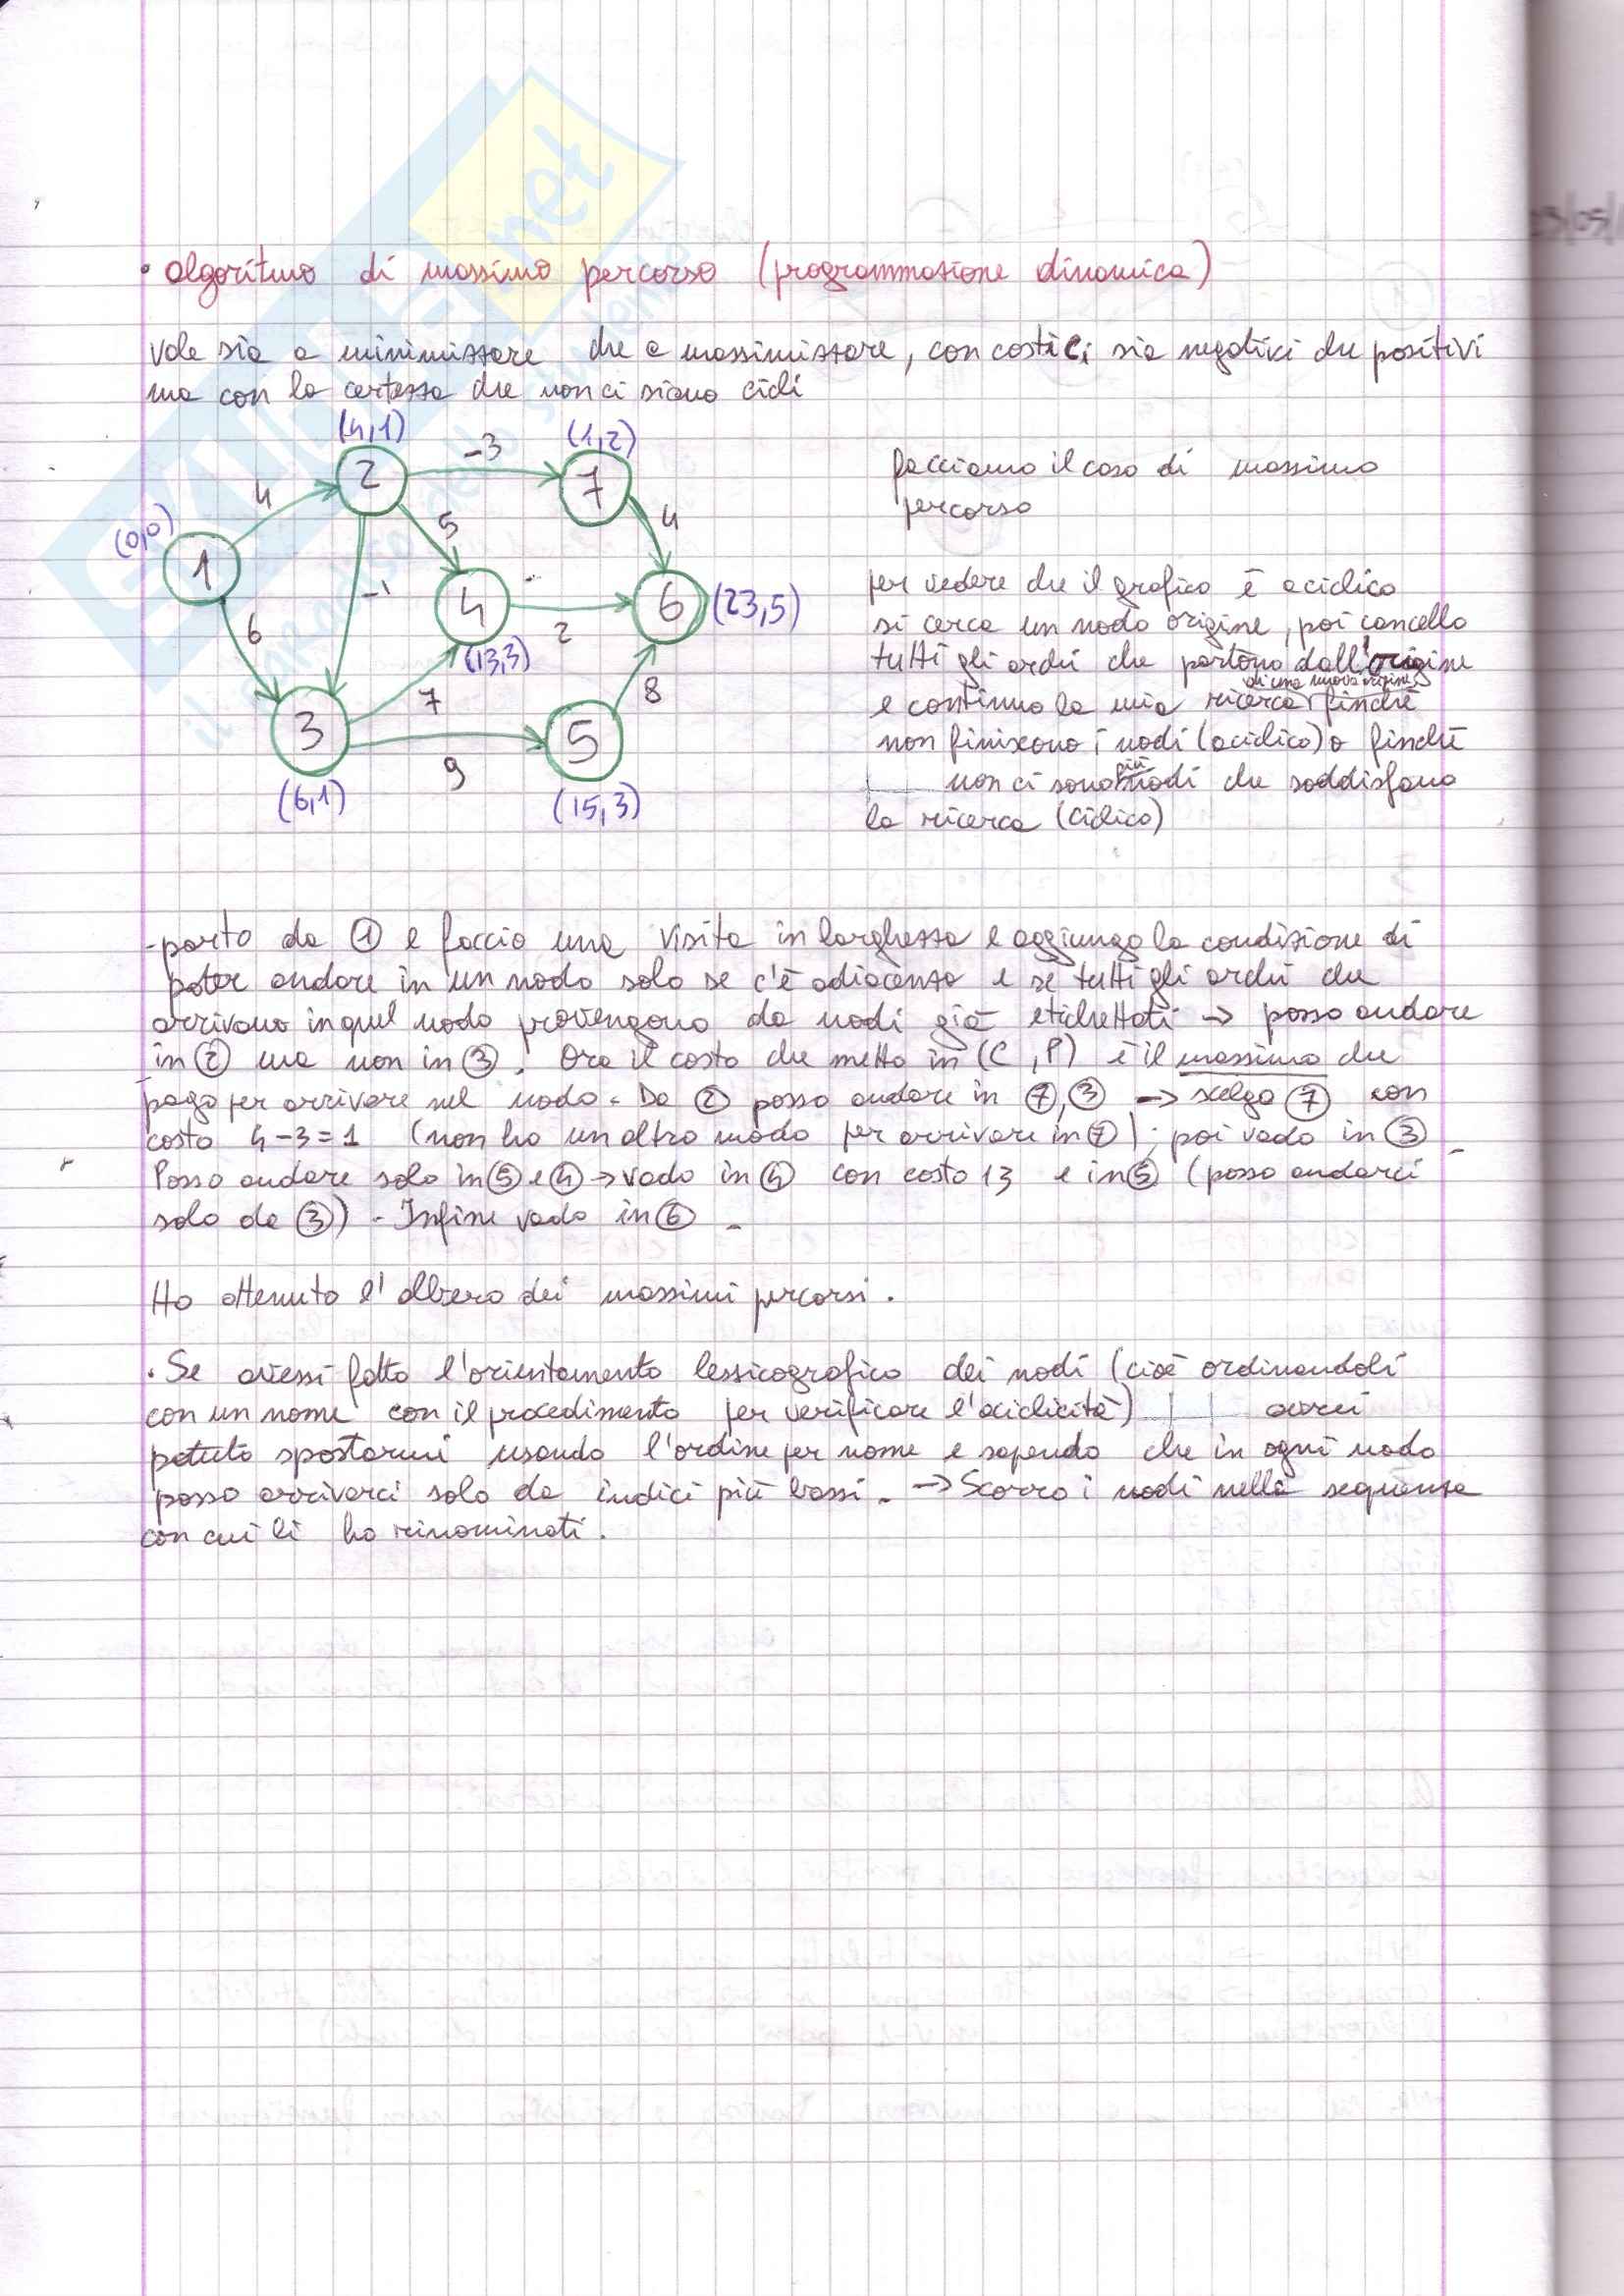 • algoritmo di massimo percorso (programmazione dinamica)
vale sia a minimizzare che a massimizzare, con costi ci sia negativi che positivi
ma con la certezza che non ci siano cicli
(4,1)
-3
(1,2)
facciamo il caso di massimo
percorso
2
7
4
5
4
(0,0)
1
-1
4
2
6
(23,5)
6
(13,3)
7
8
3
9
5
(6,1)
(15,3)
per vedere che il grafico è aciclico
si cerca un nodo origine, poi cancello
tutti gli archi che partono dall'origine
di una nuova origine
e continuo la mia ricerca finchè
non finiscono i nodi (aciclico) o finchè
non ci sono più nodi che soddisfano
la ricerca (ciclico)
- parto da ① e faccio una visita in larghezza e aggiungo la condizione di
poter andare in un nodo solo se c'è adiacenza e se tutti gli archi che
arrivano in quel nodo provengono da nodi già etichettati → posso andare
in ② ma non in ③. Ora il costo che metto in (C, P) è il massimo che
pago per arrivare nel nodo. Da ② posso andare in ⑦,③ → scelgo ⑦ con
costo 4-3=1 (non ho un altro modo per arrivare in ⑦); poi vado in ③.
Posso andare solo in ⑤ e ④ → vado in ④ con costo 13 e in ⑤ (posso andarci
solo da ③). Infine vado in ⑥.
Ho ottenuto l'albero dei massimi percorsi.
• Se avessi fatto l'orientamento lessicografico dei nodi (cioè ordinandoli
con un nome con il procedimento per verificare l'aciclicità) avrei
potuto spostarmi usando l'ordine per nome e sapendo che in ogni nodo
posso arrivarci solo da indici più bassi. → Scorro i nodi nella sequenza
con cui li ho rinominati.